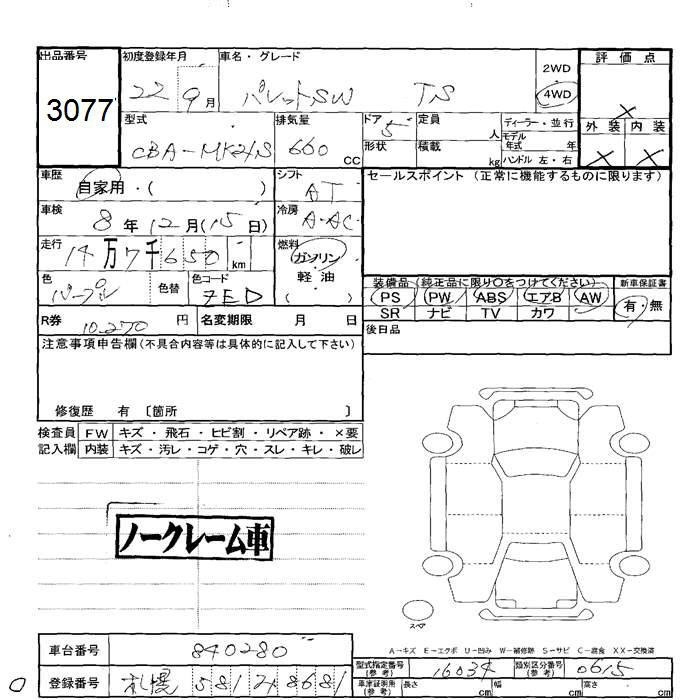 出品番号
3077
初度登録年月
22 9月
車名・グレード
パレットSW TS
2WD
4WD
評価点
×
外装 内装
× ×
型式
CBA-MK21S
排気量
660 cc
ドア
5
形状
定員
人
積載
kg
ディーラー・並行
モデル年式 年
ハンドル 左・右
車歴
自家用・( )
シフト
AT
セールスポイント (正常に機能するものに限ります)
車検
8年12月(15日)
冷房
A・AC
走行
14万7千650km
燃料
ガソリン
軽油
( )
色
パープル
色替
色コード
ZED
装備品 (純正品に限り○をつけてください)
新車保証書
PS PW ABS エアB AW
有・無
SR ナビ TV カワ
R券
10,270円
名変期限 月 日
後日品
注意事項申告欄(不具合内容等は具体的に記入して下さい)
修復歴 有 〔箇所 〕
検査員 FW キズ・飛石・ヒビ割・リペア跡・×要
記入欄 内装 キズ・汚レ・コゲ・穴・スレ・キレ・破レ
ノークレーム車
スペア
A-キズ E-エクボ U-凹み W-補修跡 S-サビ C-腐食 XX-交換済
車台番号
840280
型式指定番号(参考)
16034
類別区分番号(参考)
0615
登録番号
札幌 581 た 8681
車庫証明用(参考)
長さ cm 幅 cm 高さ cm